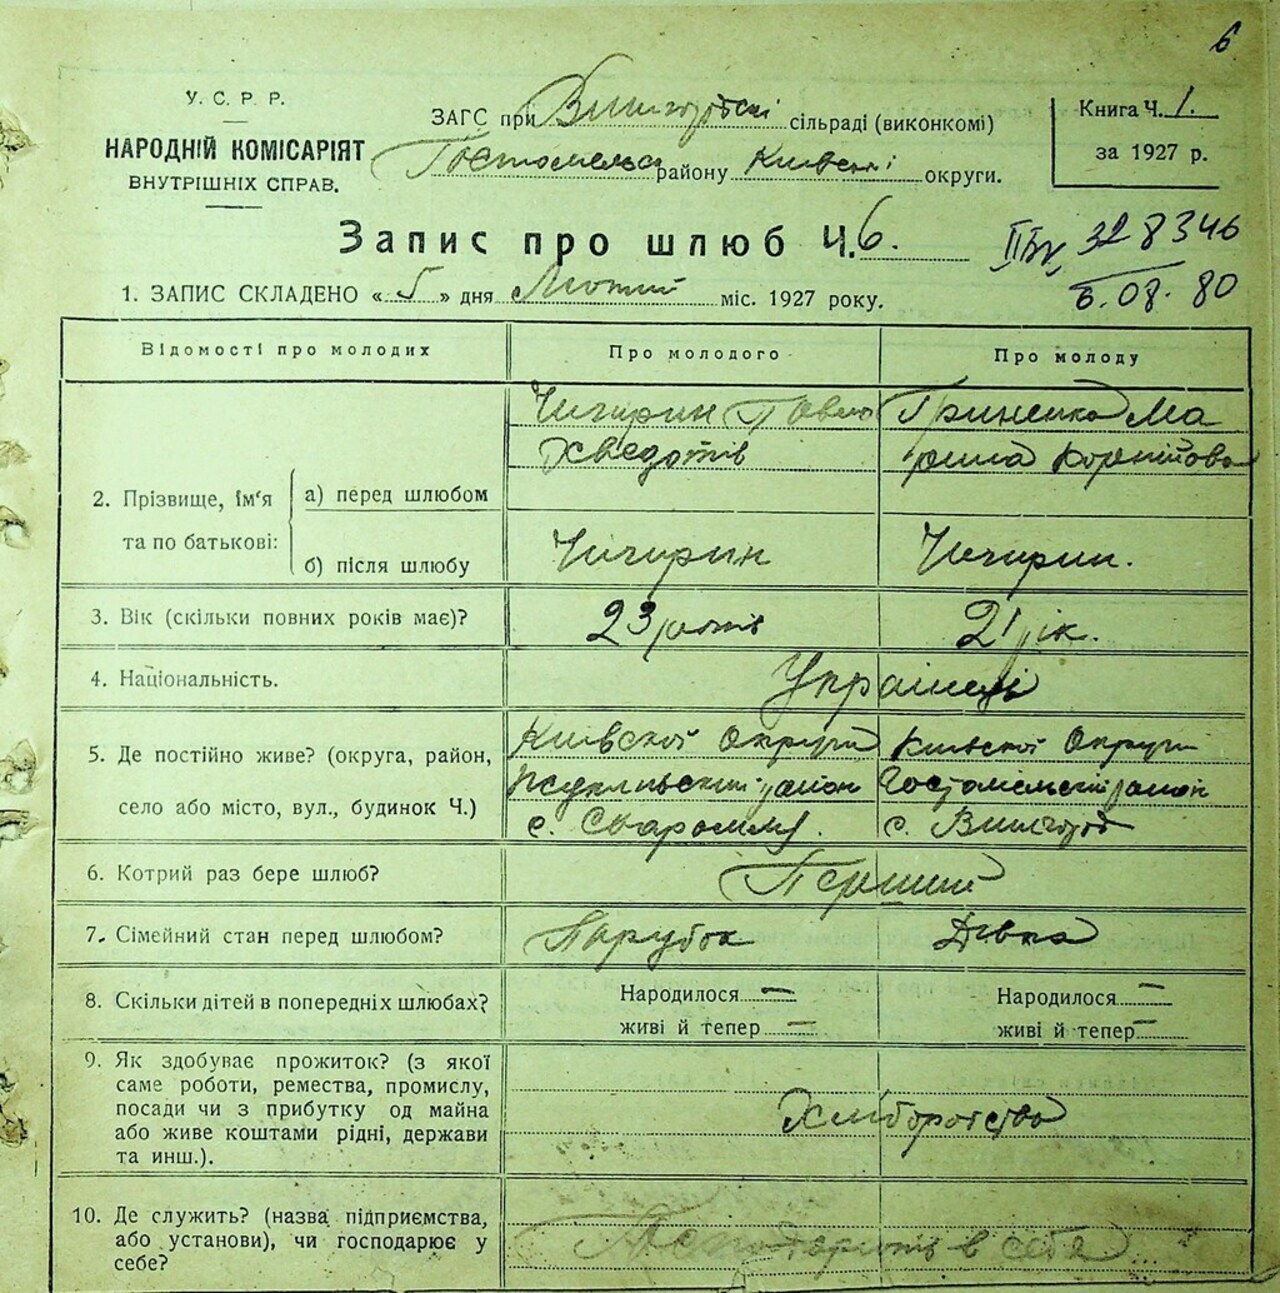 6
У. С. Р. Р.
НАРОДНІЙ КОМІСАРІЯТ
ВНУТРІШНІХ СПРАВ.
ЗАГС при Вишгородскі сільраді (виконкомі)
району Київскі округи.
Книга Ч. 1.
за 1927 р.
Запис про шлюб Ч. 6.
328346
6.08.80
1. ЗАПИС СКЛАДЕНО « 5 » дня Лютий міс. 1927 року.
Відомості про молодих
Про молодого
Про молоду
2. Прізвище, ім'я та по батькові:
а) перед шлюбом
Чичирин Павло
Хведотів
Гриненко Ма
рина Корнійова
б) після шлюбу
Чичирин
Чичирин.
3. Вік (скільки повних років має)?
23 років
21 рік.
4. Національність.
Українці
5. Де постійно живе? (округа, район,
село або місто, вул., будинок Ч.)
Київскої Округи
район
с.
Київскої Округи
Гостомельский район
с. Вишгород
6. Котрий раз бере шлюб?
Перший
7. Сімейний стан перед шлюбом?
Парубок
Дівка
8. Скільки дітей в попередніх шлюбах?
Народилося —
живі й тепер —
Народилося —
живі й тепер —
9. Як здобуває прожиток? (з якої
саме роботи, ремества, промислу,
посади чи з прибутку од майна
або живе коштами рідні, держави
та инш.).
Хліборотство
10. Де служить? (назва підприємства,
або установи), чи господарює у
себе?
в себе